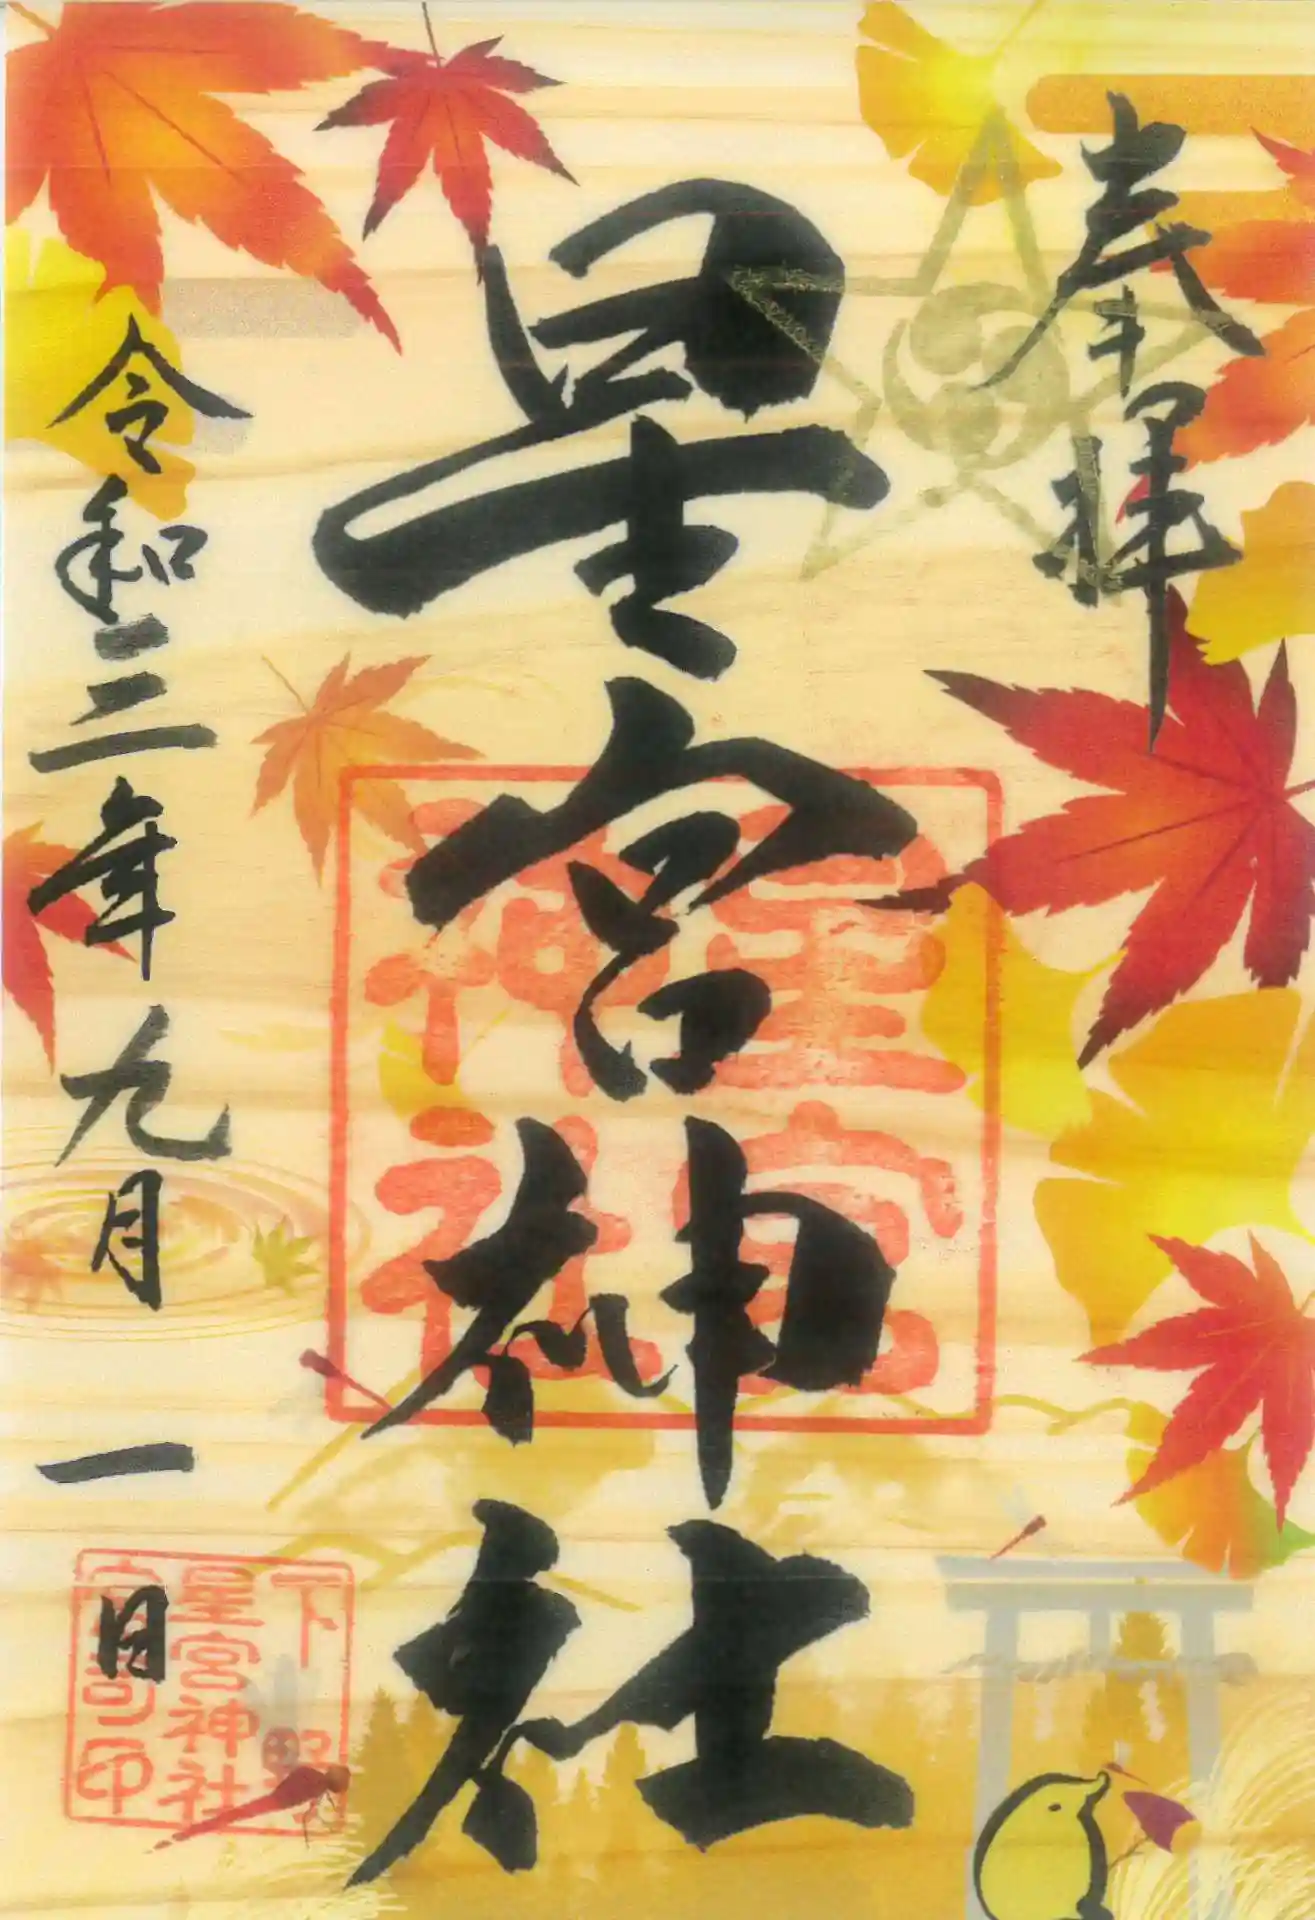 奉拝
星宮神社
星宮
神社
令和三年九月一日
下野
星宮神社
宮司印